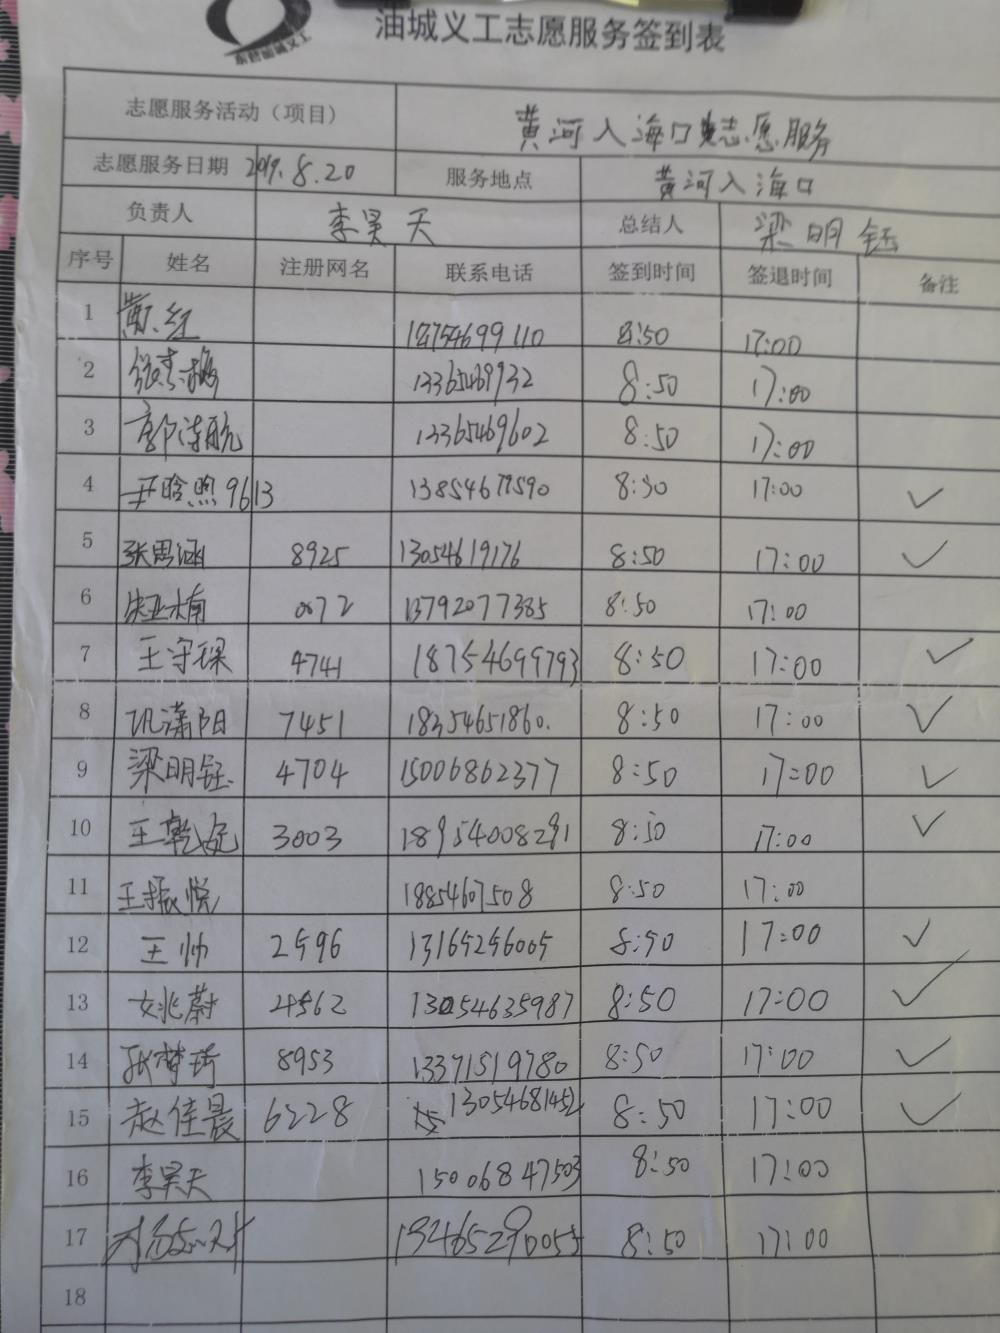 油城义工志愿服务签到表
东营油城义工
志愿服务活动（项目） 黄河入海口志愿服务
志愿服务日期 2019.8.20 服务地点 黄河入海口
负责人 李昊天 总结人 梁明钰
序号 姓名 注册网名 联系电话 签到时间 签退时间 备注
1 红 18754699110 8:50 17:00
2 13365469932 8:50 17:00
3 郭涛航 13365469602 8:50 17:00
4 王晗煦 9613 8:30 17:00 ✓
5 张思涵 8925 13054619176 8:50 17:00 ✓
6 0072 13792077385 8:50 17:00
7 王守琛 4741 18754699793 8:50 17:00 ✓
8 巩潇阳 7451 18354651860. 8:50 17:00 ✓
9 梁明钰 4704 15006862377 8:50 17:00 ✓
10 王乾 3003 18954008291 8:50 17:00 ✓
11 王振悦 1885467508 8:50 17:00
12 王帅 2596 13165256005 8:50 17:00 ✓
13 姚蔚 4562 13054635987 8:50 17:00 ✓
14 张梦琦 8953 13371519780 8:50 17:00 ✓
15 赵佳晨 6228 13054681452 8:50 17:00 ✓
16 李昊天 15006847503 8:50 17:00
17 8:50 17:00
18